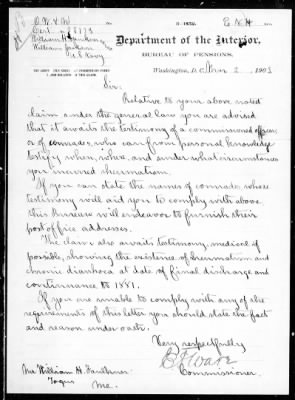 Department of the Interior,
BUREAU OF PENSIONS,
Washington, D.C., 2, 1903
Sir:
Relative to your above noted
claim under the general law you are advised
that it awaits the testimony of a commissioned officer,
or of comrades, who can from personal knowledge
testify when, where, and under what circumstances
you incurred rheumatism.
If you can state the names of comrades whose
testimony will aid you to comply with above
this Bureau will endeavor to furnish their
post office addresses.
The claim also awaits testimony, medical if
possible, showing the existence of rheumatism and
chronic diarrhoea at date of final discharge and
continuance to 1881.
If you are unable to comply with any of the
requirements of this letter you should state the fact
and reason under oath.
Very respectfully
Commissioner.
Mr. William H.
Togus
Me.